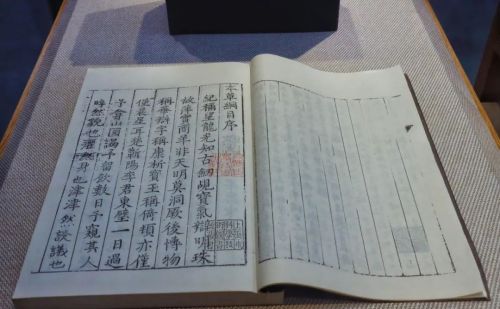 本草綱目序
紀稱望龍光知古劍覘寶氣辯明珠
故萍實商羊非天明莫洞厥後博物
稱華辯字稱康析寶玉稱倚頓亦僅
僅晨星耳楚蘄陽李君東璧一日過
予弇山園謁予留飲數日予窺其人
睟然貌也癯然身也津津然談議也